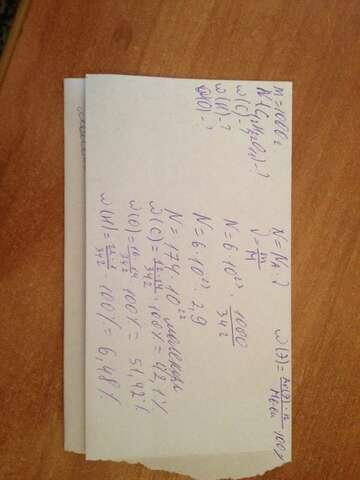 m=1000г
N(C12H22O11)-?
ω(C)-?
ω(H)-?
ω(O)-?
N=NA·?
ν=m/M
ω(?)=Ar(?)·n/Mr·100%
N=6·10²³·1000/342
N=6·10²³·2,9
N=174·10²² молекул
ω(C)=12·12/342·100%=42,1%
ω(O)=16·11/342·100%=51,42%
ω(H)=22·1/342·100%=6,48%